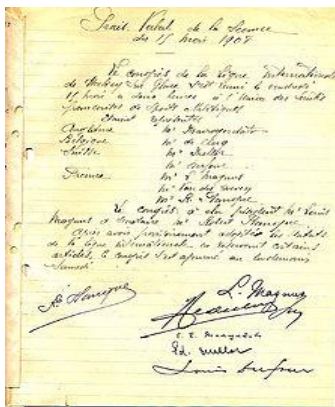 Procès Verbal de la Séance
du 15 mai 1908
Le congrès de la Ligue Internationale
de Hockey sur Glace s'est réuni le vendredi
15 mai à deux heures à l'Union des Sociétés
de Sports Athlétiques
Étaient
Angleterre Mr
Belgique Mr de Clercq
Suisse Mr Mellor
Mr Dufour
France Mr L. Magnus
Mr van der
Mr R. Planque
Le congrès a élu président Mr Louis
Magnus et secrétaire Mr Robert Planque
Après avoir provisoirement adopté les statuts
de la ligue internationale en réservant certains
articles, le congrès s'est ajourné au lendemain
Samedi
R. Planque
L. Magnus
Ed. Mellor
Louis Dufour